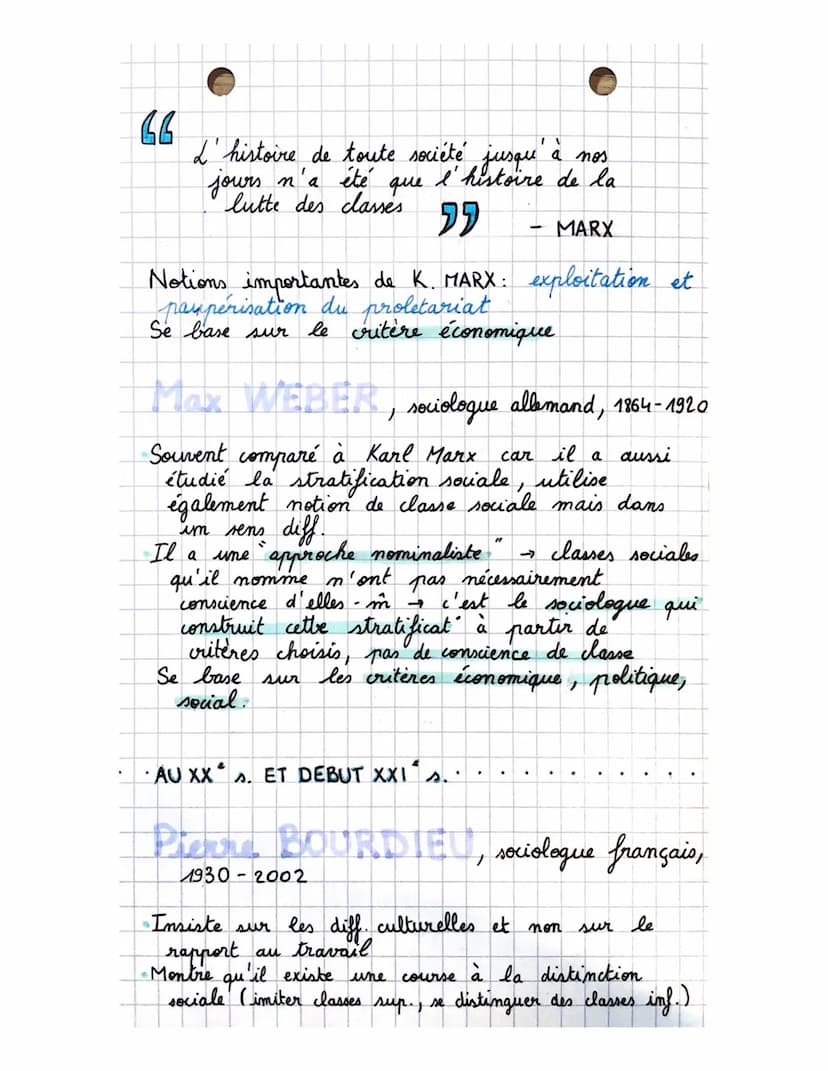 “
L'histoire de toute société jusqu'à nos
jours n'a été que l'histoire de la
lutte des classes ”
- MARX
Notions importantes de K. MARX : exploitation et
paupérisation du proletariat
Se base sur le critère économique
Max WEBER, sociologue allemand, 1864-1920
Souvent comparé à Karl Marx car il a aussi
étudié la stratification sociale, utilise
également notion de classe sociale mais dans
un sens diff.
Il a une "approche nominaliste" → classes sociales
qu'il nomme n'ont pas nécessairement
conscience d'elles-m̂ → c'est le sociologue qui
construit cette stratificat° à partir de
critères choisis, pas de conscience de classe
Se base sur les critères économique, politique,
social.
· AU XXe s. ET DEBUT XXIe s. · · · · · · · · · · ·
Pierre BOURDIEU, sociologue français,
1930 - 2002
Insiste sur les diff. culturelles et non sur le
rapport au travail
Montre qu'il existe une course à la distinction
sociale (imiter classes sup., se distinguer des classes inf.)